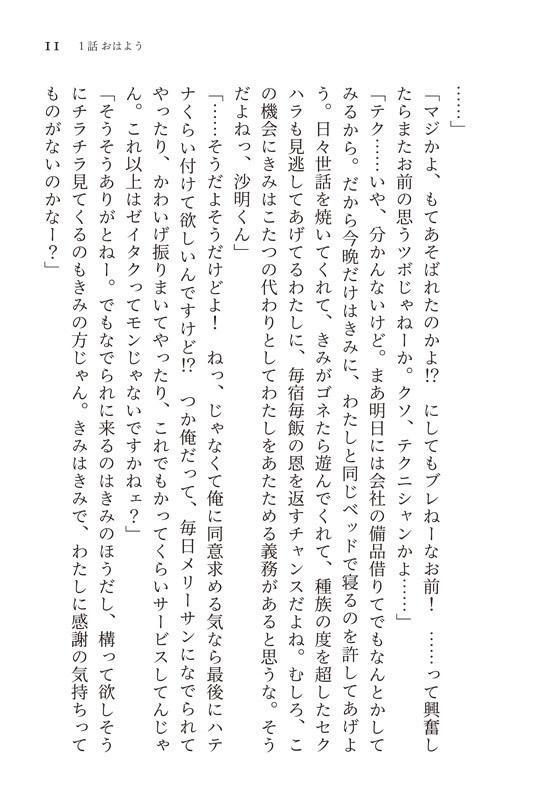 11　1話 おはよう
……」
「マジかよ、もてあそばれたのかよ!?　にしてもブレねーなお前！　……って興奮し
たらまたお前の思うツボじゃねーか。クソ、テクニシャンかよ……」
「テク……いや、分かんないけど。まあ明日には会社の備品借りてでもなんとかして
みるから。だから今晩だけはきみに、わたしと同じベッドで寝るのを許してあげよ
う。日々世話を焼いてくれて、きみがゴネたら遊んでくれて、種族の度を超したセク
ハラも見逃してあげてるわたしに、毎宿毎飯の恩を返すチャンスだよね。むしろ、こ
の機会にきみはこたつの代わりとしてわたしをあたためる義務があると思うな。そう
だよねっ、沙明くん」
「……そうだよそうだけどよ！　ねっ、じゃなくて俺に同意求める気なら最後にハテ
ナくらい付けて欲しいんですけど!?　つか俺だって、毎日メリーサンになでられて
やったり、かわいげ振りまいてやったり、これでもかってくらいサービスしてんじゃ
ん。これ以上はゼイタクってモンじゃないですかねェ？」
「そうそうありがとねー。でもなでられに来るのはきみのほうだし、構って欲しそう
にチラチラ見てくるのもきみの方じゃん。きみはきみで、わたしに感謝の気持ちって
ものがないのかなー？」